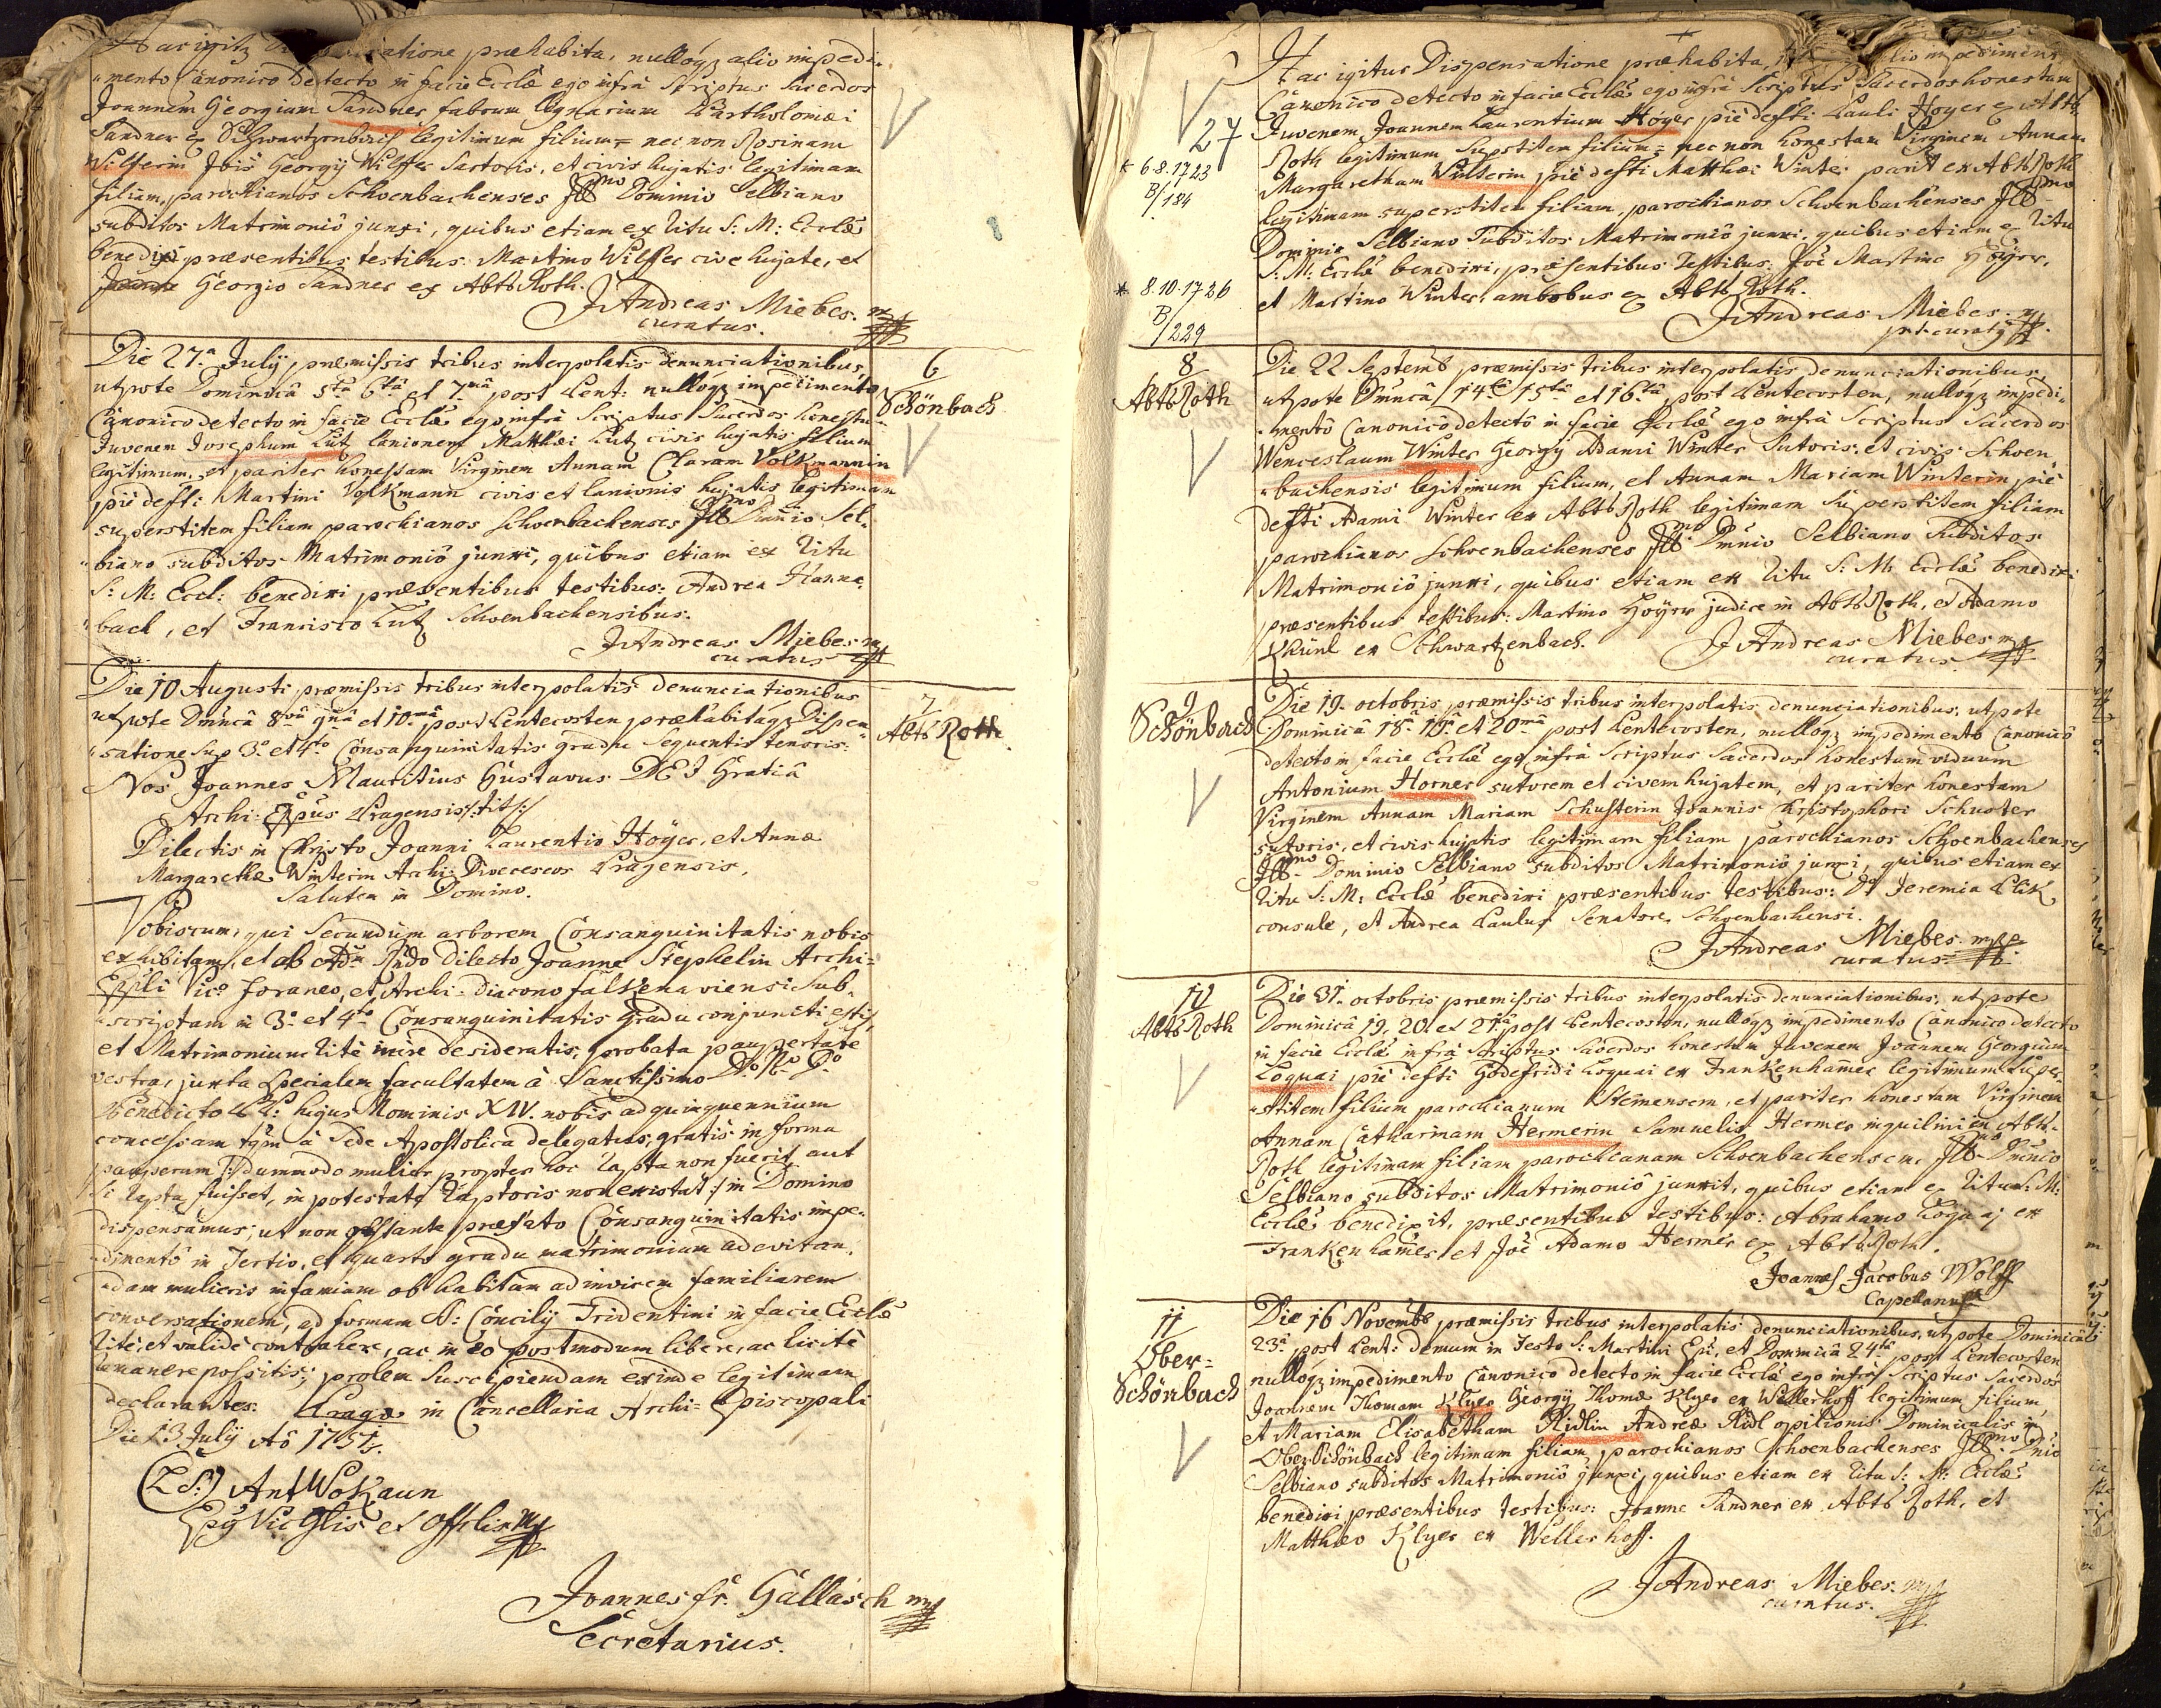 Hac igitz atione præhabita, nullóqz alio impedi-
mento Canonico detecto in facie Ecclæ ego infrà Scriptus Sacerdos
Joannem Georgium Sandner fabrum lignarium Bartholomæi
Sandner ex Schwartzenbach legitimum filium nec non Rosinam
Wilferin Jois Georgij Wilffer Sartoris, et civis hujatis legitimam
filiam, parochianos Schoenbachenses Illmo Dominio Selbiano
subditos Matrimoniô junxi, quibus etiam ex Ritu S: M: Ecclæ
benedixi præsentibus testibus: Martino Wilffer cive hujate, et
Georgio Sandner ex Abtsroth.
JAndreas Miebes. mp
curatus.
Die 27.a Julij, præmissis tribus interpolatis denunciationibus,
utpote Dominicâ 5tâ 6tâ et 7.mâ post Pent: nullóqz impedimento
Canonico detecto in facie Ecclæ ego infrà Scriptus Sacerdos honestum
Juvenem Josephum Lutz lanionem Matthæi Lutz civis hujatis filium
legitimum, et pariter honestam Virginem Annam Claram Volkmannin
piè defti: Martini Volkmann civis et lanionis hujatis legitimam
superstitem filiam parochianos Schoenbachenses Illmo Dnnio Sel-
biano subditos Matrimoniô junxi, quibus etiam ex Ritu
S: M: Eccl: benedixi præsentibus testibus: Andrea Hanna-
bach, et Francisco Lutz Schoenbachensibus.
JAndreas Miebes mp
curatus
6
Schönbach
Die 10 Augusti præmissis tribus interpolatis denunciationibus
utpote Dmncâ 8vâ 9nâ et 10.mâ post Pentecosten præhabitáqz Dispen-
satione Sup 3.o et 4to Consanguinitatis gradu Sequentis tenoris:
7
Abtsroth
Nos Joannes Mauritius Gustavus DEI Gratiâ
Archi: Eppus Pragensis /:tit:/
Dilectis in Christo Joanni Laurentio Höyer, et Annæ
Margarethæ Winterin Archi: Dioeceseos Pragensis,
Salutem in Domino.
Vobiscum, qui Secundùm arborem Consanguinitatis nobis
exhibitam, et ab Adm Rndo Dilecto Joanne Stephelin Archi-
Eppli Vico foraneo, et Archi-diacono falkenaviensi Sub-
scriptam in 3.o et 4to Consanguinitatis gradu conjuncti estis,
et Matrimonium ritè inire desideratis, probata paupertate
vestra, juxta Specialem facultatem à Sanctissimo D.o N.o D.o
Benedicto PP: hujus Nominis XIV. nobis ad quinquennium
concessam tqm à Sede Apostolica delegatus, gratis in forma
pauperum /: dummodo mulier propter hoc rapta non fuerit, aut
si rapta fuisset, in potestate raptoris non existat:/ in Domino
dispensamus; ut non obstante præfato Consanguinitatis impe-
dimentô in Tertio, et quarto gradu matrimonium ad evitan-
dam mulieris infamiam ob habitam ad invicem familiarem
conversationem, ad formam S: Concilij Tridentini in facie Ecclæ
ritè, et validè contrahere, ac in eo postmodum liberè, ac licitè
remanere possitis; prolem Suscipiendam exinde legitimam
declarantes. Pragæ in Cancellaria Archi-Episcopali
Die 13 Julij Aô 1751.
(L.S.) Ant Wokaun
Vic Glis et Offlis mp
Joannes fr. Gallasch mp
Secretarius.
Hac igitur Dispensatione præhabita, alio impedimento
Canonico detecto in facie Ecclæ ego infrà Scriptus Sacerdos honestum
Juvenem Joannem Laurentium Höyer piè defti Pauli Höyer ex Abts-
Roth legitimum Supstitem filium nec non honestam Virginem Annam
Margaretham Winterin piè defti Matthæi Winter parit ex Abtsroth
legitimam superstitem filiam, parochianos Schoenbachenses Illmo
Dominio Selbiano Subditos Matrimoniô junxi, quibus etiam ex Ritu
S: M: Ecclæ benedixi, præsentibus testibus: Joe Martino Höyer,
et Martino Winter, ambobus ex Abtsroth.
JAndreas Miebes. mp
p.t. curatus
27
* 6.8.1723
B/184
* 8.10.1726
B/229
8
Abtsroth
Die 22 Septemb præmissis tribus interpolatis denunciationibus,
utpote Dmncâ 14tâ 15tâ et 16tâ post Pentecosten, nullóqz impedi-
mentô Canonicô detectô in facie Ecclæ ego infrà Scriptus Sacerdos
Wenceslaum Winter Georgij Adami Winter Sutoris, et civis Schoen-
bachensis legitimum filium, et Annam Mariam Winterin piè
defti Adami Winter ex Abtsroth legitimam Superstitem filiam
parochianos Schoenbachenses Illmo Dmnio Selbiano Subditos
Matrimoniô junxi, quibus etiam ex Ritu S: M: Ecclæ benedixi
præsentibus testibus: Martino Höyer judice in Abtsroth, et Adamo
Khünl ex Schwartzenbach.
JAndreas Miebes mp
curatus
9
Schönbach
Die 19. octobris præmissis tribus interpolatis denunciationibus, utpote
Dominicâ 18.â 19.â et 20mâ post Pentecosten, nullóqz impedimentô Canonicô
detecto in facie Ecclæ ego infrà Scriptus Sacerdos honestum viduum
Antonium Horner sutorem et civem hujatem, et pariter honestam
Virginem Annam Mariam Schusterin Joannis Christophori Schuster
sutoris, et civis hujatis legitimam filiam parochianos Schoenbachenses
Illmo Dominio Selbiano subditos Matrimoniô junxi, quibus etiam ex
Ritu S: M: Ecclæ benedixi præsentibus testibus: Do Jeremia Plik
consule, et Andrea Paulus Senatore Schoenbachensi.
JAndreas Miebes. mpp
curatus.
10
Abtsroth
Die 31. octobris præmissis tribus interpolatis denunciationibus, utpote
Dominicâ 19, 20. et 21.mâ post Pentecosten, nullóqz impedimento Canonico detecto
in facie Ecclæ infrà Scriptus Sacerdos honestum Juvenem Joannem Georgium
Loquai piè defti Godefridi Loquai ex Frankenhamer legitimum Super-
stitem filium parochianum Steinensem, et pariter honestam Virginem
Annam Catharinam Hermerin Samuelis Hermer inquilini in Abts-
Roth legitimam filiam parochianam Schoenbachensem, Illmo Dmnio
Selbiano subditos Matrimoniô junxit, quibus etiam ex Ritu S: M:
Ecclæ benedixit, præsentibus testibus: Abrahamo Loquaj ex
Frankenhamer et Joe Adamo Hermer ex Abtsroth.
Joannes Jacobus Wolff
Capellanus
11
Ober-
Schönbach
Die 16 Novemb præmissis tribus interpolatis denunciationibus, utpote Dominicâ
23â post Pent: demum in Festo S: Martini Epi, et Dominicâ 24tâ post Pentecosten
nullóqz impedimento Canonico detecto in facie Ecclæ ego infrà Scriptus Sacerdos
Joannem Thomam Klyer Georgij Thomæ Klyer ex Wellerhoff legitimum filium,
et Mariam Elisabetham Ridlin Andreæ Ridl opilionis Dominicalis in
Oberschönbach legitimam filiam, parochianos Schoenbachenses Illmo Dnio
Selbiano subditos Matrimoniô junxi, quibus etiam ex Ritu S: M: Ecclæ
benedixi præsentibus testibus: Joanne Sandner ex Abtsroth, et
Matthæo Klyer ex Wellerhoff.
JAndreas Miebes. mp
curatus.